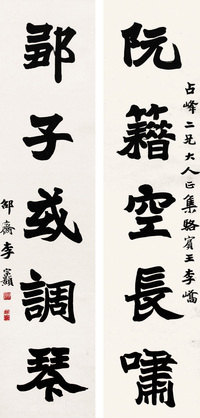 阮籍空長嘯
占峰二兄大人正集駱賓王李嶠
子或調琴
邵齋李宗顥